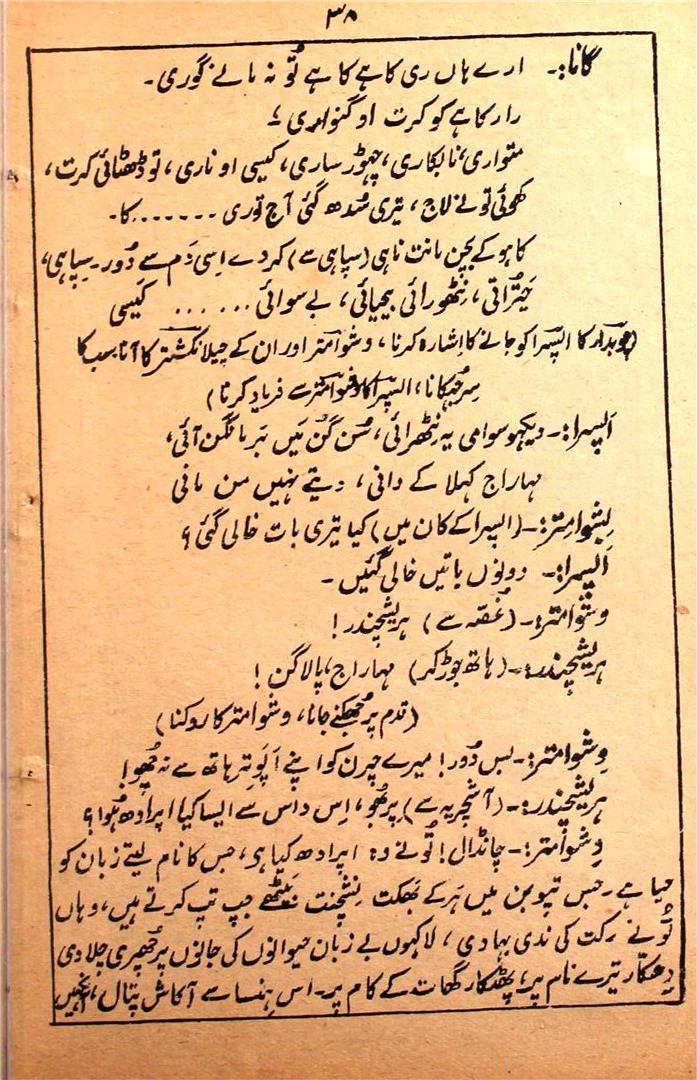 ۳۸
گانا:۔ ارے ہاں ری کاہے کاہے تُو نہ مانے گوری۔
رار کاہے کو کرت او گنواری ؟
متواری، نابکاری، چھوڑ ساری، کیسی او ناری، تو ڈھٹائی کرت،
کھوئی تو نے لاج، تیری سُدھ گئی آج توری ۔۔۔۔۔۔۔ کا۔
کاہو کے بچن مانت ناہی (سپاہی سے) کردے اِسی دَم سے دُور۔ سپاہی،
چَترائی، نِٹھورائی، بیحیائی، بے سوائی ...... کیسی
(چوبدار کا اپسرا کو جانے کا اشارہ کرنا، وشوامتر اور ان کے چیلا نکشتر کا آنا، سب کا
سر جُھکانا، اپسرا کا وشوامتر سے فریاد کرنا)
اَپسرا:۔ دیکھو سوامی یہ نٹھرائی، سُن گُن مَیں بَر مانگن آئی،
مہاراج کہلا کے دانی، دیتے نہیں من مانی
وِشوامِتر:۔ (اپسرا کے کان میں) کیا تیری بات خالی گئی ؟
اَپسرا:۔ دونوں باتیں خالی گئیں۔
وشوامتر:۔ (غُصّہ سے) ہریشچندر!
ہریشچندر:۔ (ہاتھ جوڑ کر) مہاراج، پالاگن!
(قدم پر جُھکنے جانا، وشوامتر کا روکنا)
وِشوامتر:۔ بس دُور! میرے چرن کو اپنے اَپَوتر ہاتھ سے نہ چُھو!
ہریشچندر:۔ (آشچریہ سے) پربُھو، اِس داس سے ایسا کیا اپرادھ ہُوا؟
وِشوامتر:۔ چانڈال! تُو نے وہ اپرادھ کیا ہے، جس کا نام لیتے زبان کو
حیا ہے۔ جس تپوبن میں ہَر کے بھگت نِشچنت بَیٹھے جپ تپ کرتے ہیں، وہاں
تُو نے رکت کی ندی بہادی، لاکھوں بے زبان حیوانوں کی جانوں پر چُھری چلا دی
دِھکّار تیرے نام پر، پھٹکار گھات کے کام پر۔ اس ہِنسا سے آکاش پتال، اَنہیں